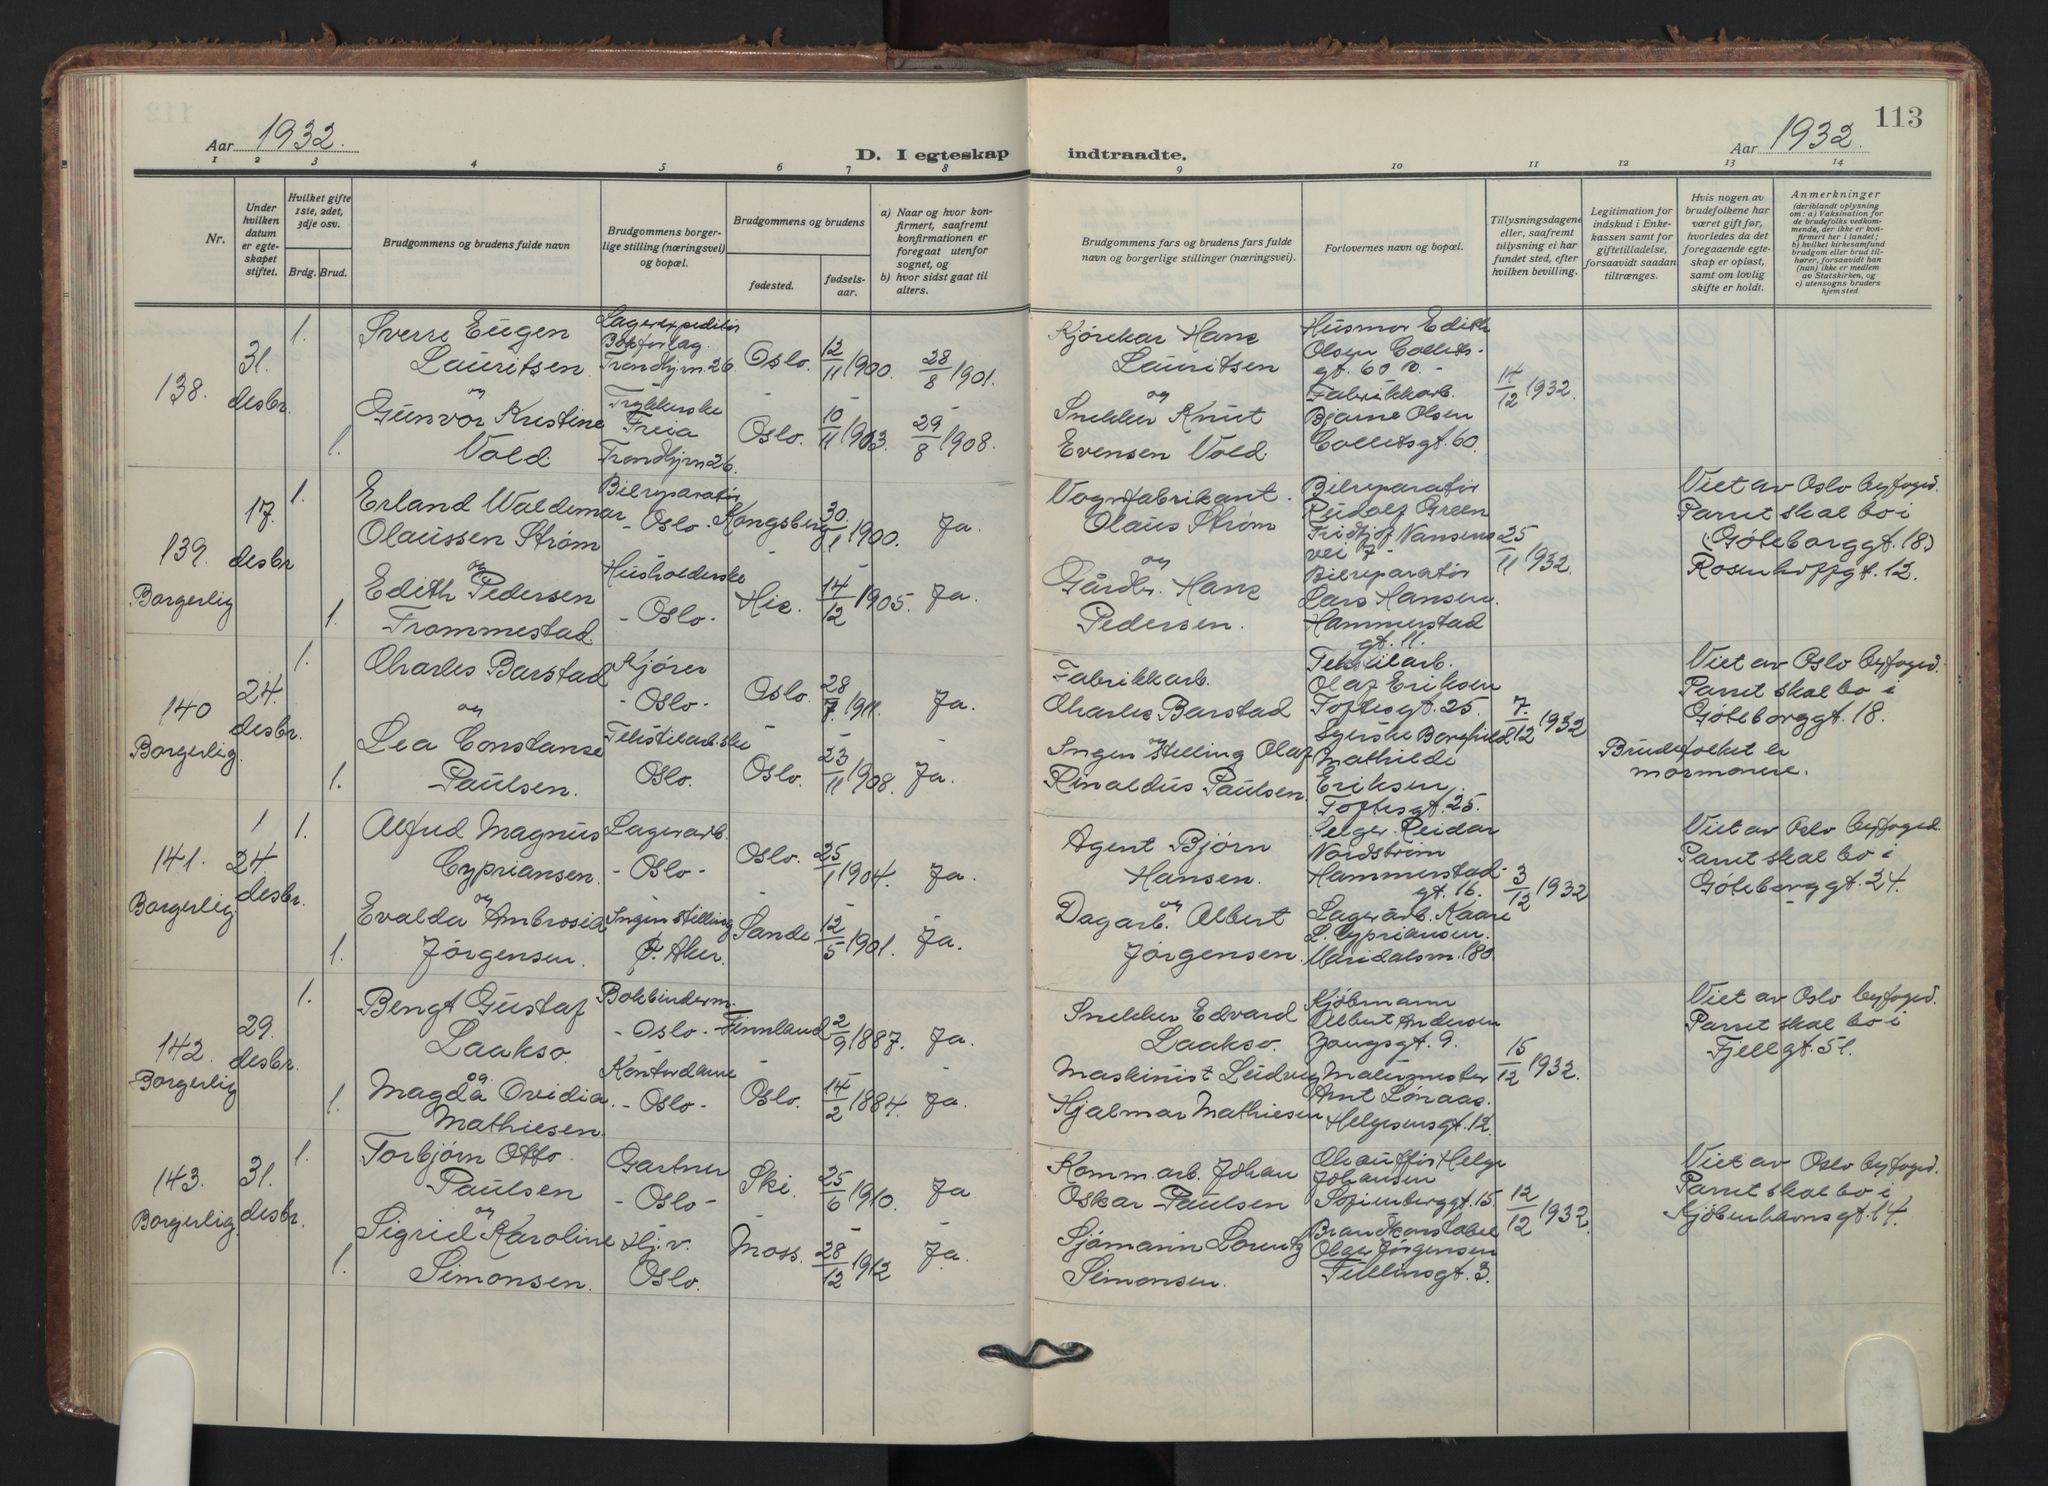 Aar 1932.
D. I egteskap
indtraadte.
Aar 1932.
113
1 2 3 4 5 6 7 8 9 10 11 12 13 14
Nr.
Under hvilken datum er egteskapet stiftet.
Hvilket gifte 1ste, 2det, 3dje osv.
Brdg. Brud.
Brudgommens og brudens fulde navn
Brudgommens borgerlige stilling (næringsvei) og bopæl.
Brudgommens og brudens
fødested.
fødselsaar.
a) Naar og hvor konfirmert, saafremt konfirmationen er foregaat utenfor sognet, og
b) hvor sidst gaat til alters.
Brudgommens fars og brudens fars fulde navn og borgerlige stillinger (næringsvei).
Forlovernes navn og bopæl.
Tillysningsdagene eller, saafremt tillysning ei har fundet sted, efter hvilken bevilling.
Legitimation for indskud i Enkekassen samt for giftetilladelse, forsaavidt saadan tiltrænges.
Hvis nogen av brudefolkene har været gift før, hvorledes da det foregaaende egteskap er opløst, samt om lovlig skifte er holdt.
Anmerkninger
(deriblandt oplysning om: a) Vaksination for de brudefolks vedkommende, der ikke er konfirmert her i landet; b) hvilket kirkesamfund brudgom eller brud tilhører, forsaavidt han (hun) ikke er medlem av Statskirken, og c) utensogns bruders hjemsted
138.
31. desbr.
1.
Sverre Eugen
Lauritsen
Lagerexpeditør
Bokforlag.
Trondhjm. 26.
Oslo.
12/11 1900.
28/8 1901.
Kjørekar Hans
Lauritsen
Husmor Edith
Olsen Colletts-
gt. 60 -
14/12 1932.
og
1.
Gunvor Kristine
Vold
Trykkerske
Freia
Trondhjm 26.
Oslo.
10/11 1903.
29/8 1908.
og
Snekker Knut
Evensen Vold.
Fabrikkarb.
Bjarne Olsen
Collettsgt. 60.
139.
Borgerlig
17. desbr
1.
Erland Waldemar
Olaussen Strøm
Bilreparatør
- Oslo -
Kongsberg
1900.
Ja.
Vognfabrikant.
Olaus Strøm
Bilreparatør
Reidolf Green
Fridtjof Nansens
vei 7 -
25/11 1932.
Viet av Oslo byfoged.
Parret skal bo i
(Göteborggt. 18)
Rosenhoffgt. 12.
og
1.
Edith Pedersen
Trommestad.
Husholderske
- Oslo -
Hie.
14/12 1905.
Ja.
og
Gårdbr. Hans
Pedersen.
Bilreparatør
Lars Hansen.
Hammerstad
gt. 11.
140
Borgerlig.
24. desbr.
1.
Charles Barstad
Kjører
- Oslo -
Oslo
28/7. 1911.
Ja.
Fabrikkarb.
Charles Barstad
Tekstilarb.
Olaf Eriksen
Toftesgt. 25.
7./12 1932
Viet av Oslo byfoged.
Parret skal bo i
Göteborggt. 18.
Brudefolket er
mormonere.
og
1.
Lea Constanse
Paulsen.
Tekstilarb.ske
Oslo.
Oslo.
23/11 1908.
Ja.
og
Ingen stilling Olaf
Rinaldus Paulsen.
Mathilde
Eriksen
Toftesgt. 25.
141.
Borgerlig
24. desbr.
1.
Alfred Magnus
Cypriansen.
Lagerarb.
- Oslo -
Oslo.
25/1 1904.
Ja.
Agent Bjørn
Hansen.
Selger Reidar
Nordstrøm
Hammerstad-
gt. 16.
3/12 1932
Viet av Oslo byfoged.
Parret skal bo i
Göteborggt. 24.
og
1.
Evalda Ambrosia
Jørgensen.
Ingen stilling
Ø. Aker.
Sande
12/5 1901.
Ja.
og
Dagarb. Albert
Jørgensen.
Lagerarb. Kaare
L. Cypriansen.
Maridalsv. 180
142.
Borgerlig
29. desbr.
1.
Bengt Gustaf
Laakso.
Bokbinderm.
- Oslo -
Finnland
2/9 1887.
Ja.
Snekker Edvard
Laakso.
Kjøbmann
Albert Andersen
Jongsgt. 9.
15/12 1932.
Viet av Oslo byfoged.
Parret skal bo i
Fjellgt. 51.
og
1.
Magda Ovidia
Mathiesen.
Kontordame
- Oslo -
Oslo.
14/2 1884.
Ja.
Maskinist Ludvig
Hjalmar Mathiesen
Malermester
Arnt Lønaas.
Helgesensgt. 12.
143.
Borgerlig.
31. desbr.
1.
Torbjørn Otto
Paulsen
Gartner
- Oslo -
Ski.
25/6 1910.
Ja
Komm.arb. Johan
Oskar Paulsen
Chauffør Helge
Johansen
Sofienberggt. 15
12/12 1932.
Viet av Oslo byfoged.
Parret skal bo i
Kjøbenhavnsgt. 14.
og
1.
Sigrid Karoline
Simonsen.
Hj.v.
Oslo.
Moss.
28/12 1912
Ja.
Sjømann Lorentz
Simonsen.
Brandkonstabel
Olger Jørgensen